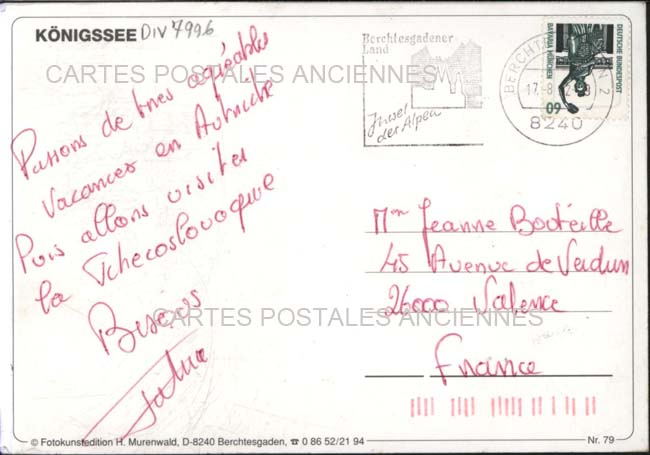 KÖNIGSSEE DIV 7996
Berchtesgadener
Land
Juwel
der Alpen
BERCHTESGADEN 2
17.-8.
8240
DEUTSCHE BUNDESPOST
BAVARIA MÜNCHEN
60
CARTES POSTALES ANCIENNES
Passons de très agréables
Vacances en Autriche
Puis allons visiter
la Tchecoslovaquie
Bisous
Mme Jeanne Bouteille
45 Avenue de Verdun
26000 Valence
France
CARTES POSTALES ANCIENNES
© Fotokunstedition H. Murenwald, D-8240 Berchtesgaden, ☎ 0 86 52/21 94
Nr. 79